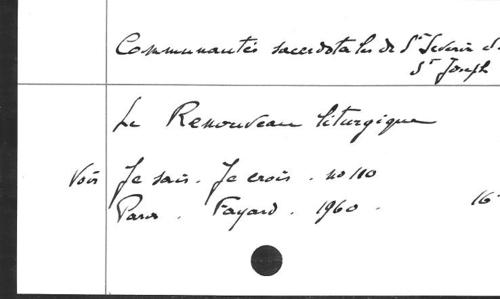 Communautés sacerdotales de St Severin
St Joseph
Le Renouveau liturgique
Voir Je sais. Je crois. no 110
Paris. Fayard. 1960. 16°